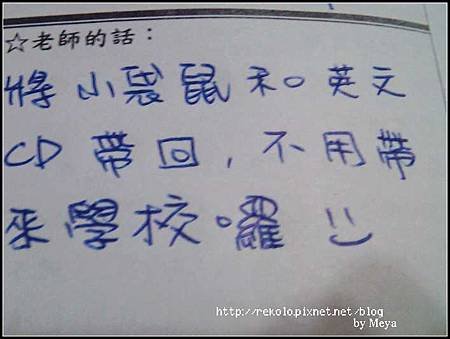 ☆老師的話：
將小袋鼠和英文
CD帶回，不用帶
來學校囉
http://rekolo.pixnet.net/blog
by Meya